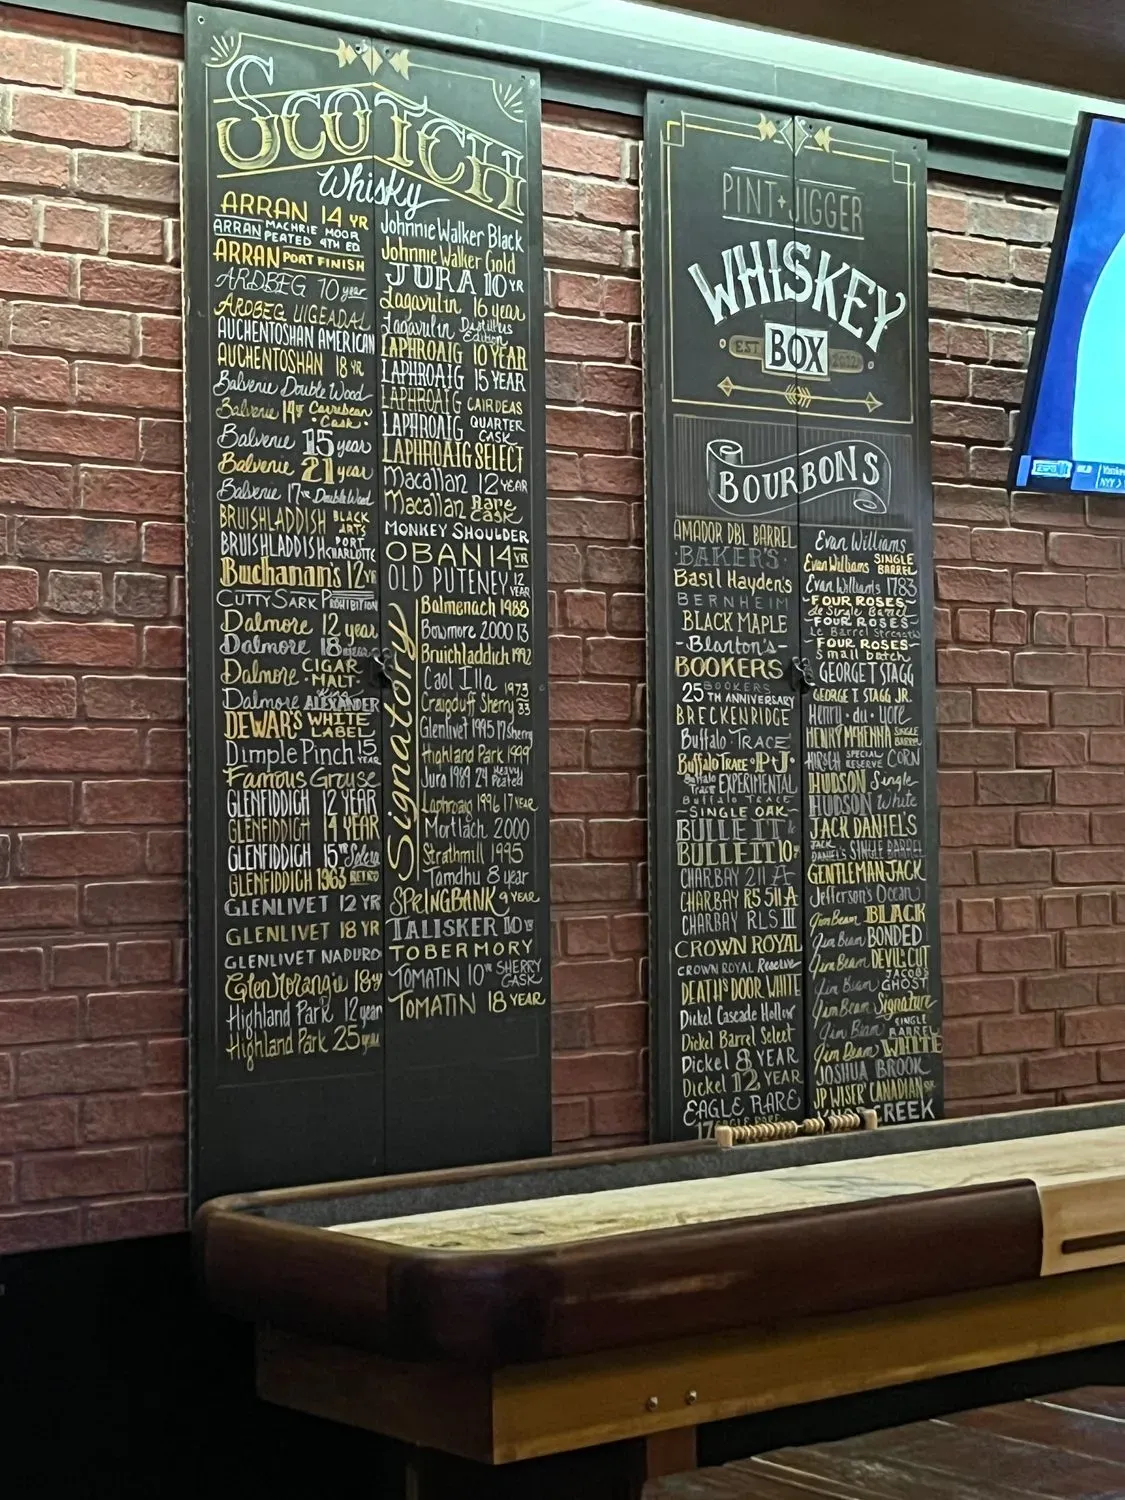 SCOTCH
Whisky
ARRAN 14 YR
ARRAN MACHRIE MOOR PEATED 4TH ED
ARRAN PORT FINISH
ARDBEG 10 year
ARDBEG UIGEADAL
AUCHENTOSHAN AMERICAN
AUCHENTOSHAN 18 YR
Balvenie Double Wood
Balvenie 14 Carribean Cask
Balvenie 15 year
Balvenie 21 year
Balvenie 17 YR Double Wood
BRUISHLADDISH BLACK ARTS
BRUISHLADDISH PORT CHARLOTTE
Buchanan's 12 Yr
CUTTY SARK PROHIBITION
Dalmore 12 year
Dalmore 18 year
Dalmore CIGAR MALT
Dalmore King ALEXANDER
DEWAR'S WHITE LABEL
Dimple Pinch 15 YEAR
Famous Grouse
GLENFIDDICH 12 YEAR
GLENFIDDICH 14 YEAR
GLENFIDDICH 15 YR Solera
GLENFIDDICH 1963 RETRO
GLENLIVET 12 YR
GLENLIVET 18 YR
GLENLIVET NADURO
GlenMorangie 18 y
Highland Park 12 year
Highland Park 25 year
Johnnie Walker Black
Johnnie Walker Gold
JURA 10 YR
Lagavulin 16 year
Lagavulin Distillers Edition
LAPHROAIG 10 YEAR
LAPHROAIG 15 YEAR
LAPHROAIG CAIRDEAS
LAPHROAIG QUARTER CASK
LAPHROAIG SELECT
Macallan 12 YEAR
Macallan Rare Cask
MONKEY SHOULDER
OBAN 14 YR
OLD PUTENEY 12 YEAR
Signatory
Balmenach 1988
Bowmore 2000 13
Bruichladdich 1992
Caol Illa
Craigduff Sherry 1973 33
Glenlivet 1995 17 Sherry
Highland Park 1999
Jura 1989 24 Heavy Peated
Laphroaig 1996 17 YEAR
Mortlach 2000
Strathmill 1995
Tamdhu 8 year
SPRINGBANK 9 YEAR
TALISKER 10 YR
TOBERMORY
TOMATIN 10 YR SHERRY CASK
TOMATIN 18 YEAR
PINT + JIGGER
WHISKEY
EST BOX
BOURBONS
AMADOR DBL BARREL
BAKER'S
Basil Hayden's
BERNHEIM
BLACK MAPLE
-Blanton's-
BOOKERS
25 BOOKERS TH ANNIVERSARY
BRECKENRIDGE
Buffalo TRACE
Buffalo TRACE P+J
Buffalo Trace EXPERIMENTAL
Buffalo Trace
-SINGLE OAK-
BULLEIT
BULLEIT 10
CHARBAY 211 A
CHARBAY RS 511 A
CHARBAY RLS III
CROWN ROYAL
CROWN ROYAL Reserve
DEATH'S DOOR WHITE
Dickel Cascade Hollow
Dickel Barrel Select
Dickel 8 YEAR
Dickel 12 YEAR
EAGLE RARE
17 EAGLE RARE
Evan Williams
Evan Williams SINGLE BARREL
Evan Williams 1783
-FOUR ROSES-
de Single Barrel
-FOUR ROSES-
Le Barrel Strength
FOUR ROSES
Small batch
GEORGE T STAGG
GEORGE T STAGG JR.
Henry·du·yore
HENRY McKENNA SINGLE BARREL
HIRSCH SPECIAL RESERVE CORN
HUDSON Single
HUDSON White
JACK DANIEL'S
JACK DANIEL'S SINGLE BARREL
GENTLEMAN JACK
Jefferson's Ocean
Jim Beam BLACK
Jim Beam BONDED
Jim Beam DEVIL'S CUT
Jim Beam JACOBS GHOST
Jim Beam Signature
Jim Beam SINGLE BARREL
Jim Beam WHITE
JOSHUA BROOK
JP WISER CANADIAN
CREEK